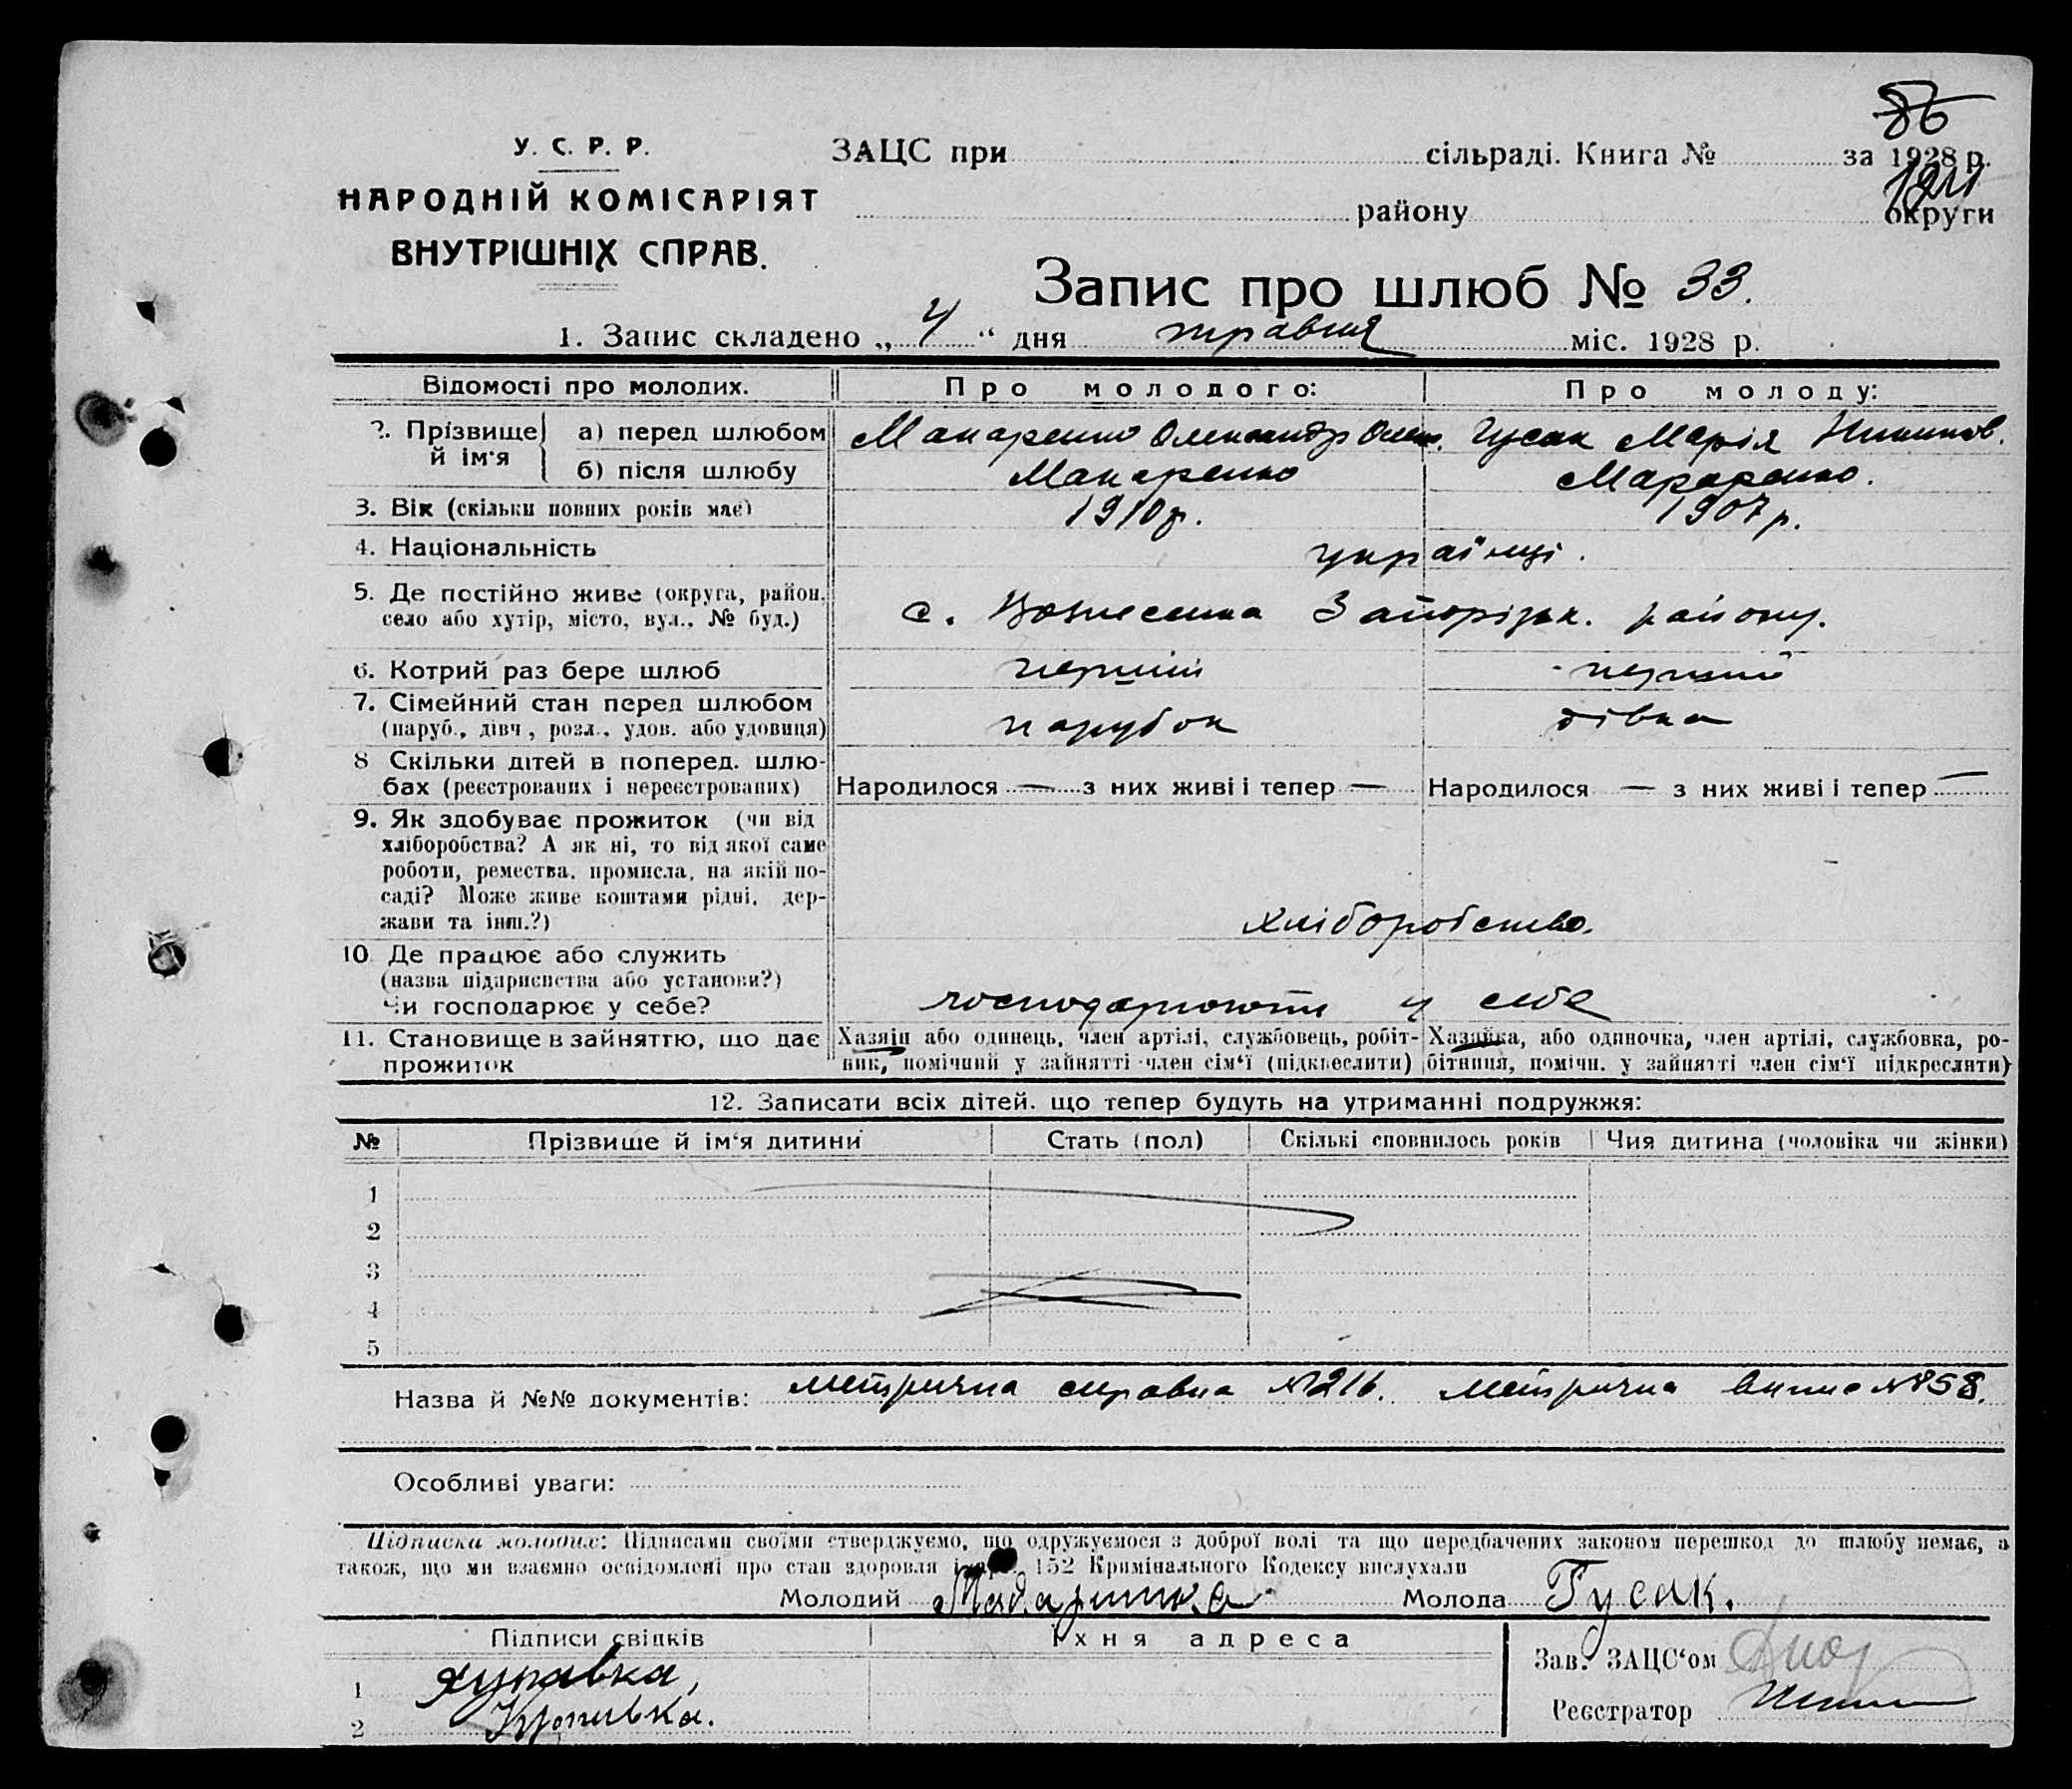 86
У. С. Р. Р.
НАРОДНІЙ КОМІСАРІЯТ
ВНУТРІШНІХ СПРАВ.
ЗАЦС при сільраді. Книга № за 1928 р.
району округи
Запис про шлюб № 33.
1. Запис складено „ 4 “ дня травня міс. 1928 р.
Відомості про молодих. Про молодого: Про молоду:
2. Прізвище й ім'я а) перед шлюбом Макаренко Олександр Олек. Гусак Марія Никинов.
б) після шлюбу Макаренко Макаренко.
3. Вік (скільки повних років має) 1910р. 1907р.
4. Національність українці.
5. Де постійно живе (округа, район, село або хутір, місто, вул., № буд.) с. Вознесенка Запорізьк. району.
6. Котрий раз бере шлюб перший перший
7. Сімейний стан перед шлюбом (паруб., дівч., розл., удов. або удовиця) парубок дівка
8 Скільки дітей в поперед. шлюбах (реєстрованих і нереєстрованих) Народилося — з них живі і тепер — Народилося — з них живі і тепер —
9. Як здобуває прожиток (чи від
хліборобства? А як ні, то від якої саме
роботи, ремества, промисла, на якій по-
саді? Може живе коштами рідні, дер-
жави та інш.?) хліборобство.
10 Де працює або служить
(назва підприємства або установи?)
Чи господарює у себе? господарюють у себе
11. Становище в зайняттю, що дає прожиток
Хазяїн або одинець, член артілі, службовець, робіт-
ник, помічний у зайнятті член сім'ї (підкреслити)
Хазяйка, або одиночка, член артілі, службовка, ро-
бітниця, помічн. у зайнятті член сім'ї підкреслити)
12. Записати всіх дітей, що тепер будуть на утриманні подружжя:
№ Прізвище й ім'я дитини Стать (пол) Скількі сповнилось років Чия дитина (чоловіка чи жінки)
1
2
3
4
5
Назва й №№ документів: метрична справка №216. Метрична випис №858.
Особливі уваги:
Підписка молодих: Підписами своїми стверджуємо, що одружуємося з доброї волі та що передбачених законом перешкод до шлюбу немає, а
також, що ми взаємно освідомлені про стан здоровля і 152 Кримінального Кодексу вислухали
Молодий Молода Гусак.
Підписи свідків Їхня адреса
1
2
Зав. ЗАЦС'ом
Реєстратор